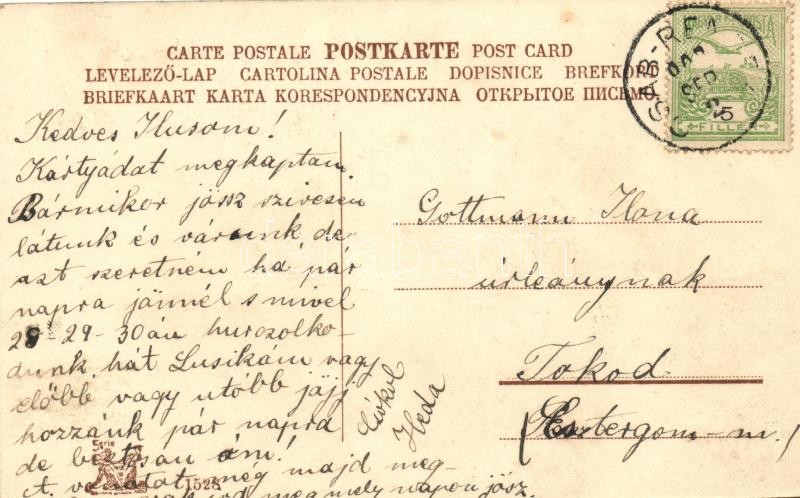 CARTE POSTALE POSTKARTE POST CARD
LEVELEZŐ-LAP CARTOLINA POSTALE DOPISNICE BREFKORT
BRIEFKAART KARTA KORESPONDENCYJNA ОТКРЫТОЕ ПИСЬМО
5
FILLÉR
Kedves Ilusom!
Kártyádat megkaptam.
Bármikor jössz szivesen
látunk és várunk de
azt szeretném ha pár
napra jönnél s mivel
28-29-30án hurczolko-
dunk hát Lusikám vagy
előbb vagy utóbb jöjj
hozzánk pár napra
de biztosan ám!
A vonatát még majd meg-
megmely napon jösz.
Csókol
Heda
Gottmann Ilona
úrleánynak
Tokod
(Esztergom-m.)
Serie
1528